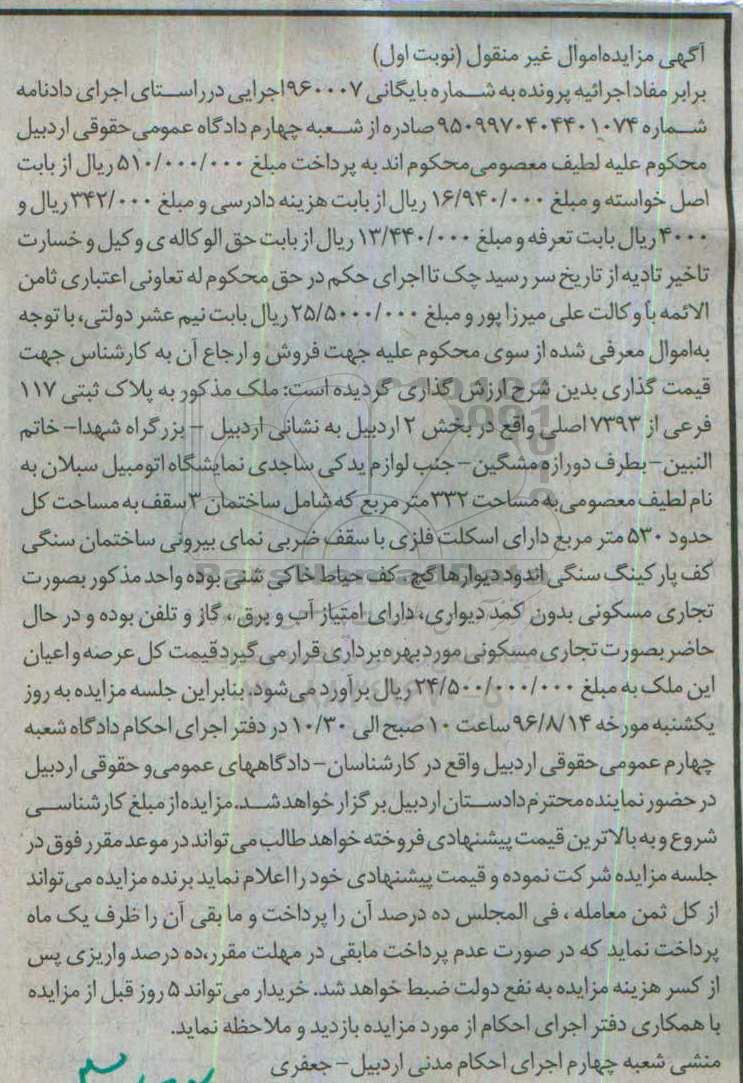 آگهی مزایدهاموال غیر منقول (نوبت اول)
برابر مفاد اجرائیه پرونده به شماره بایگانی ۹۶۰۰۰۷اجرایی درراستای اجرای دادنامه
شماره ۹۵۰۹۹۷۰۴۰۴۴۰۱۰۷۴ صادره از شعبه چهارم دادگاه عمومی حقوقی اردبیل
محکوم علیه لطیف معصومی‌محکوم اند به پرداخت مبلغ ۵۱۰/۰۰۰/۰۰۰ ریال از بابت
اصل خواسته و مبلغ ۱۶/۹۴۰/۰۰۰ ریال از بابت هزینه دادرسی و مبلغ ۳۴۲/۰۰۰ ریال و
۴۰۰۰ ریال بابت تعرفه و مبلغ ۱۳/۴۴۰/۰۰۰ ریال از بابت حق الوکاله ی وکیل و خسارت
تاخیر تادیه از تاریخ سر رسید چک تا اجرای حکم در حق محکوم له تعاونی اعتباری ثامن
الائمه با وکالت علی میرزا پور و مبلغ ۲۵/۵۰۰۰/۰۰۰ ریال بابت نیم عشر دولتی، با توجه
بهاموال معرفی شده از سوی محکوم علیه جهت فروش و ارجاع آن به کارشناس جهت
قیمت گذاری بدین شرح ارزش گذاری گردیده است: ملک مذکور به پلاک ثبتی ۱۱۷
فرعی از ۷۳۹۳ اصلی واقع در بخش ۲ اردبیل به نشانی اردبیل – بزرگراه شهدا– خاتم
النبین– بطرف دورازه مشگین– جنب لوازم یدکی ساجدی نمایشگاه اتومبیل سبلان به
نام لطیف معصومی به مساحت ۳۳۲ متر مربع که شامل ساختمان ۳ سقف به مساحت کل
حدود ۵۳۰ متر مربع دارای اسکلت فلزی با سقف ضربی نمای بیرونی ساختمان سنگی
کف پارکینگ سنگی اندود دیوارها گچ- کف حیاط خاکی شنی بوده واحد مذکور بصورت
تجاری مسکونی بدون کمد دیواری، دارای امتیاز آب و برق ، گاز و تلفن بوده و در حال
حاضر بصورت تجاری مسکونی مورد بهره برداری قرار می گیرد قیمت کل عرصه و اعیان
این ملک به مبلغ ۲۴/۵۰۰/۰۰۰/۰۰۰ ریال برآورد می شود. بنابراین جلسه مزایده به روز
یکشنبه مورخه ۹۶/۸/۱۴ ساعت ۱۰ صبح الی ۱۰/۳۰ در دفتر اجرای احکام دادگاه شعبه
چهارم عمومی حقوقی اردبیل واقع در کارشناسان– دادگاههای عمومی‌و حقوقی اردبیل
در حضور نماینده محترم دادستان اردبیل برگزار خواهد شد. مزایده از مبلغ کارشناسی
شروع و به بالاترین قیمت پیشنهادی فروخته خواهد طالب می تواند در موعد مقرر فوق در
جلسه مزایده شرکت نموده و قیمت پیشنهادی خود را اعلام نماید برنده مزایده می تواند
از کل ثمن معامله ، فی المجلس ده درصد آن را پرداخت و ما بقی آن را ظرف یک ماه
پرداخت نماید که در صورت عدم پرداخت مابقی در مهلت مقرر،ده درصد واریزی پس
از کسر هزینه مزایده به نفع دولت ضبط خواهد شد. خریدار می تواند ۵ روز قبل از مزایده
با همکاری دفتر اجرای احکام از مورد مزایده بازدید و ملاحظه نماید.
منشی شعبه چهارم اجرای احکام مدنی اردبیل– جعفری